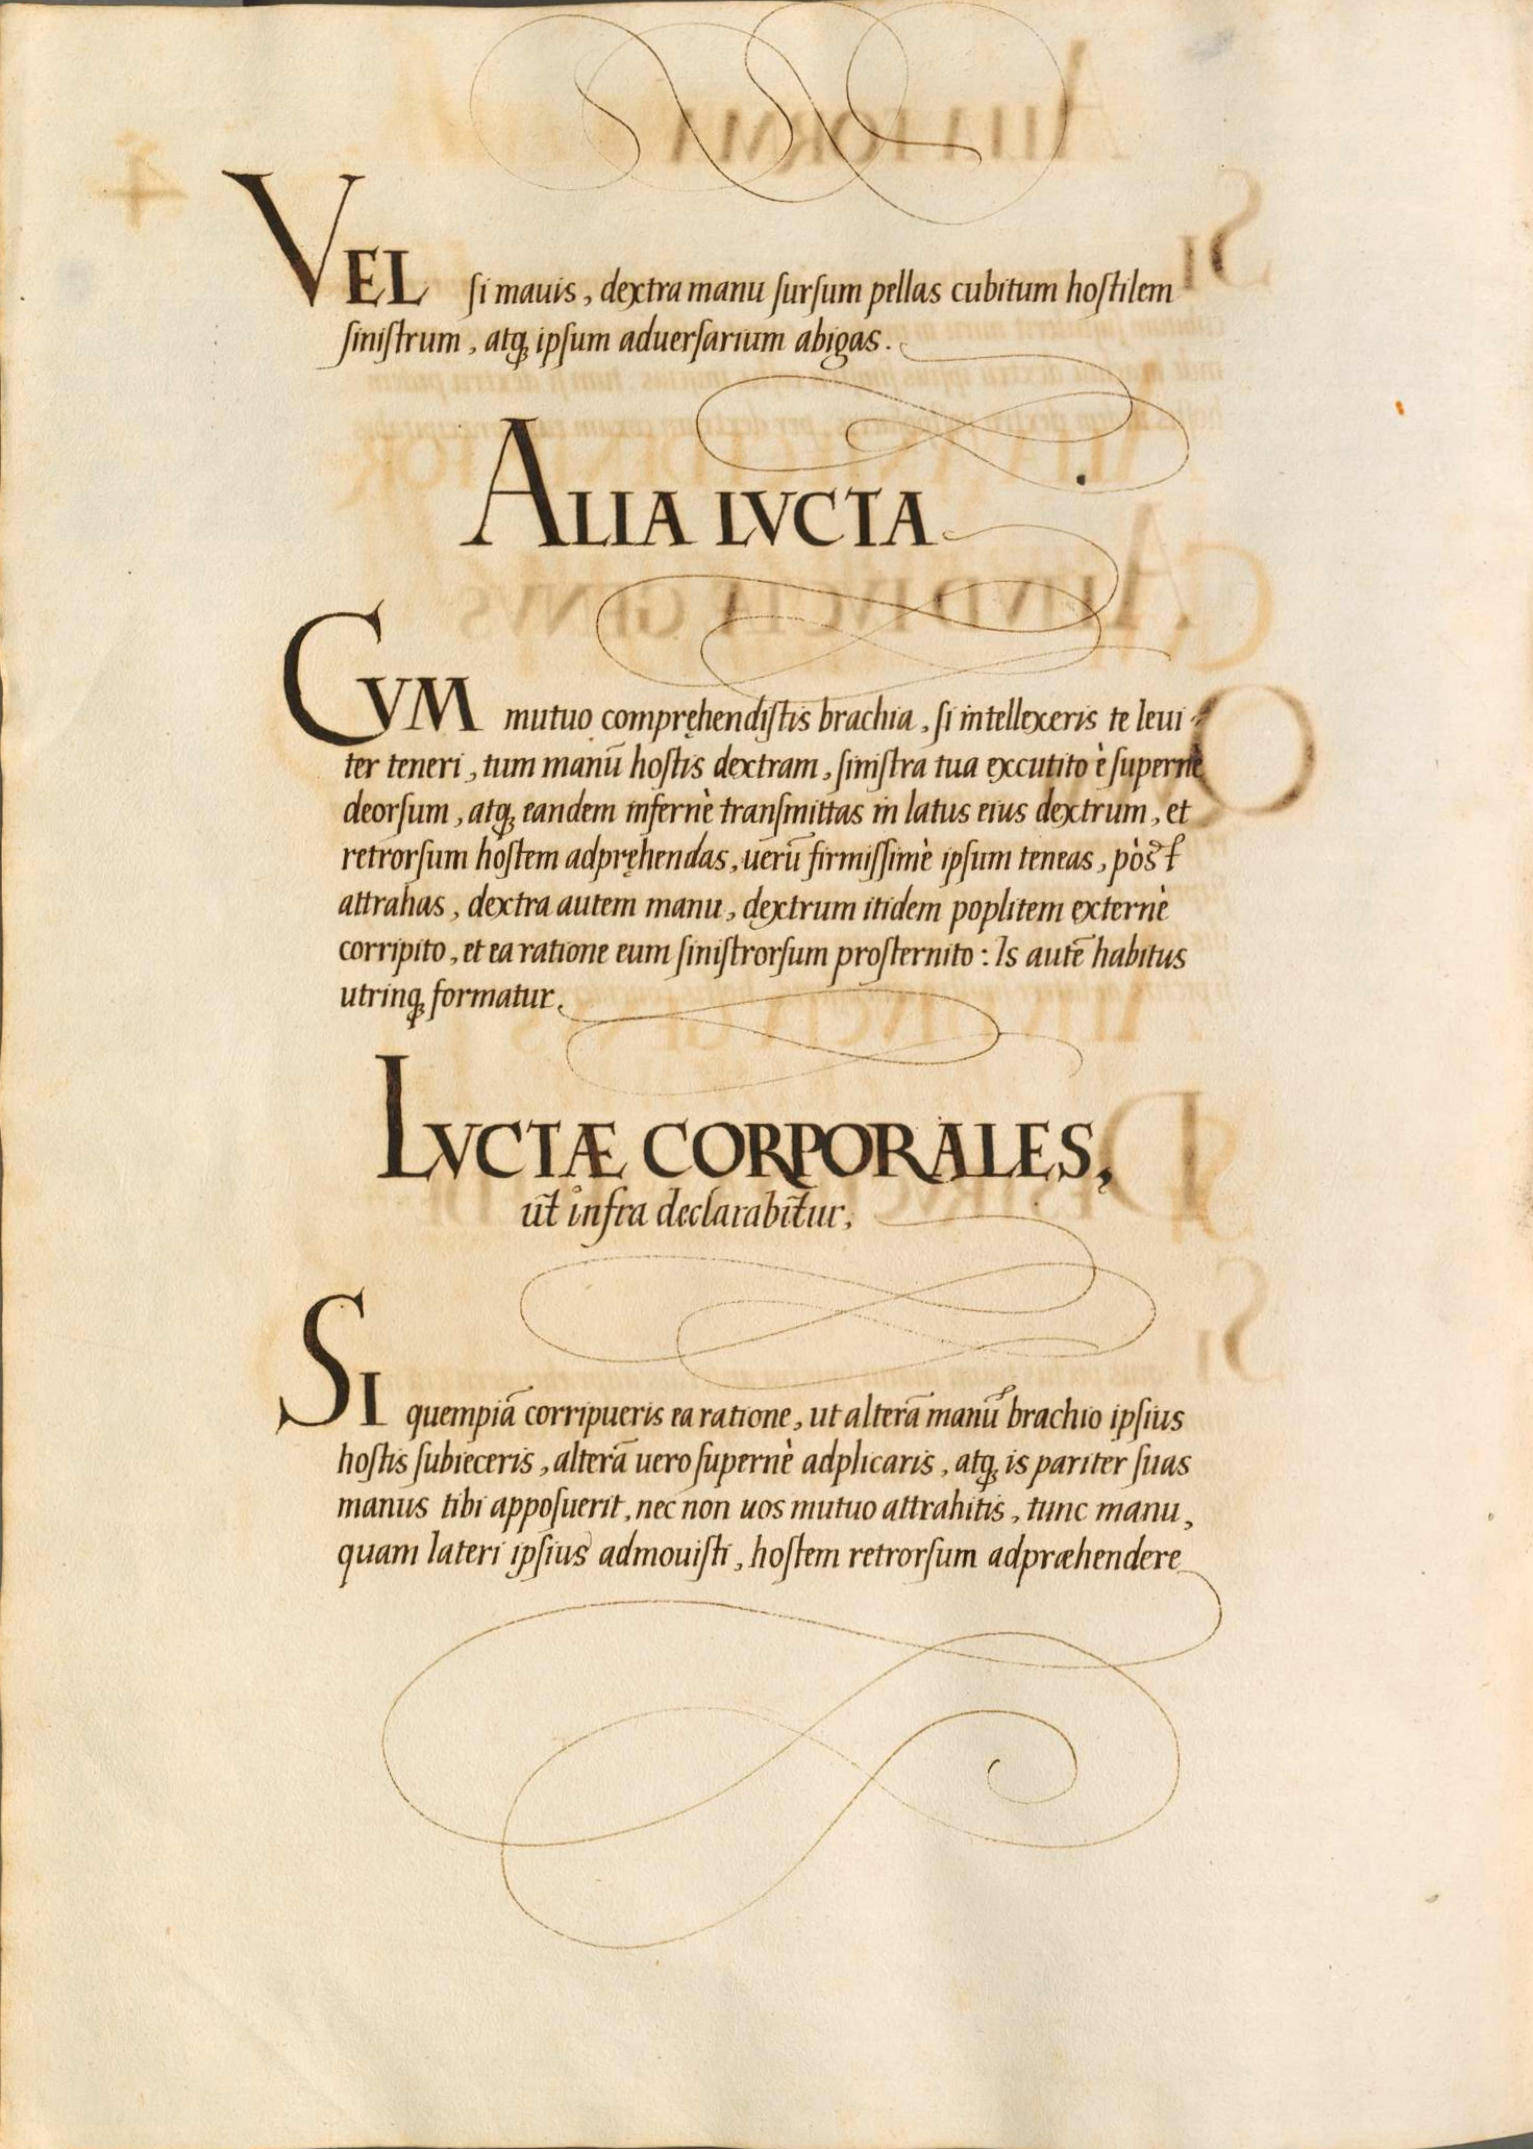 VEL ſi mauis, dextra manu ſurſum pellas cubitum hoſtilem
ſiniſtrum, atq; ipſum aduerſarium abigas.
ALIA LVCTA
CVM mutuo compręhendiſtis brachia, ſi intellexeris te leui-
ter teneri, tum manū hoſtis dextram, ſiniſtra tua excutito è ſupernè
deorſum, atq; eandem infernè tranſmittas in latus eius dextrum, et
retrorſum hoſtem adpręhendas, uerū firmiſſimè ipſum teneas,
attrahas, dextra autem manu, dextrum itidem poplitem externè
corripito, et ea ratione eum ſiniſtrorſum proſternito: Is autē habitus
utrinq; formatur.
LVCTÆ CORPORALES,
ut infra declarabitur,
SI quempiā corripueris ea ratione, ut alterā manū brachio ipſius
hoſtis ſubieceris, alterā uero ſupernè adplicaris, atq; is pariter ſuas
manus tibi appoſuerit, nec non uos mutuo attrahitis, tunc manu,
quam lateri ipſius admouiſti, hoſtem retrorſum adpræhendere